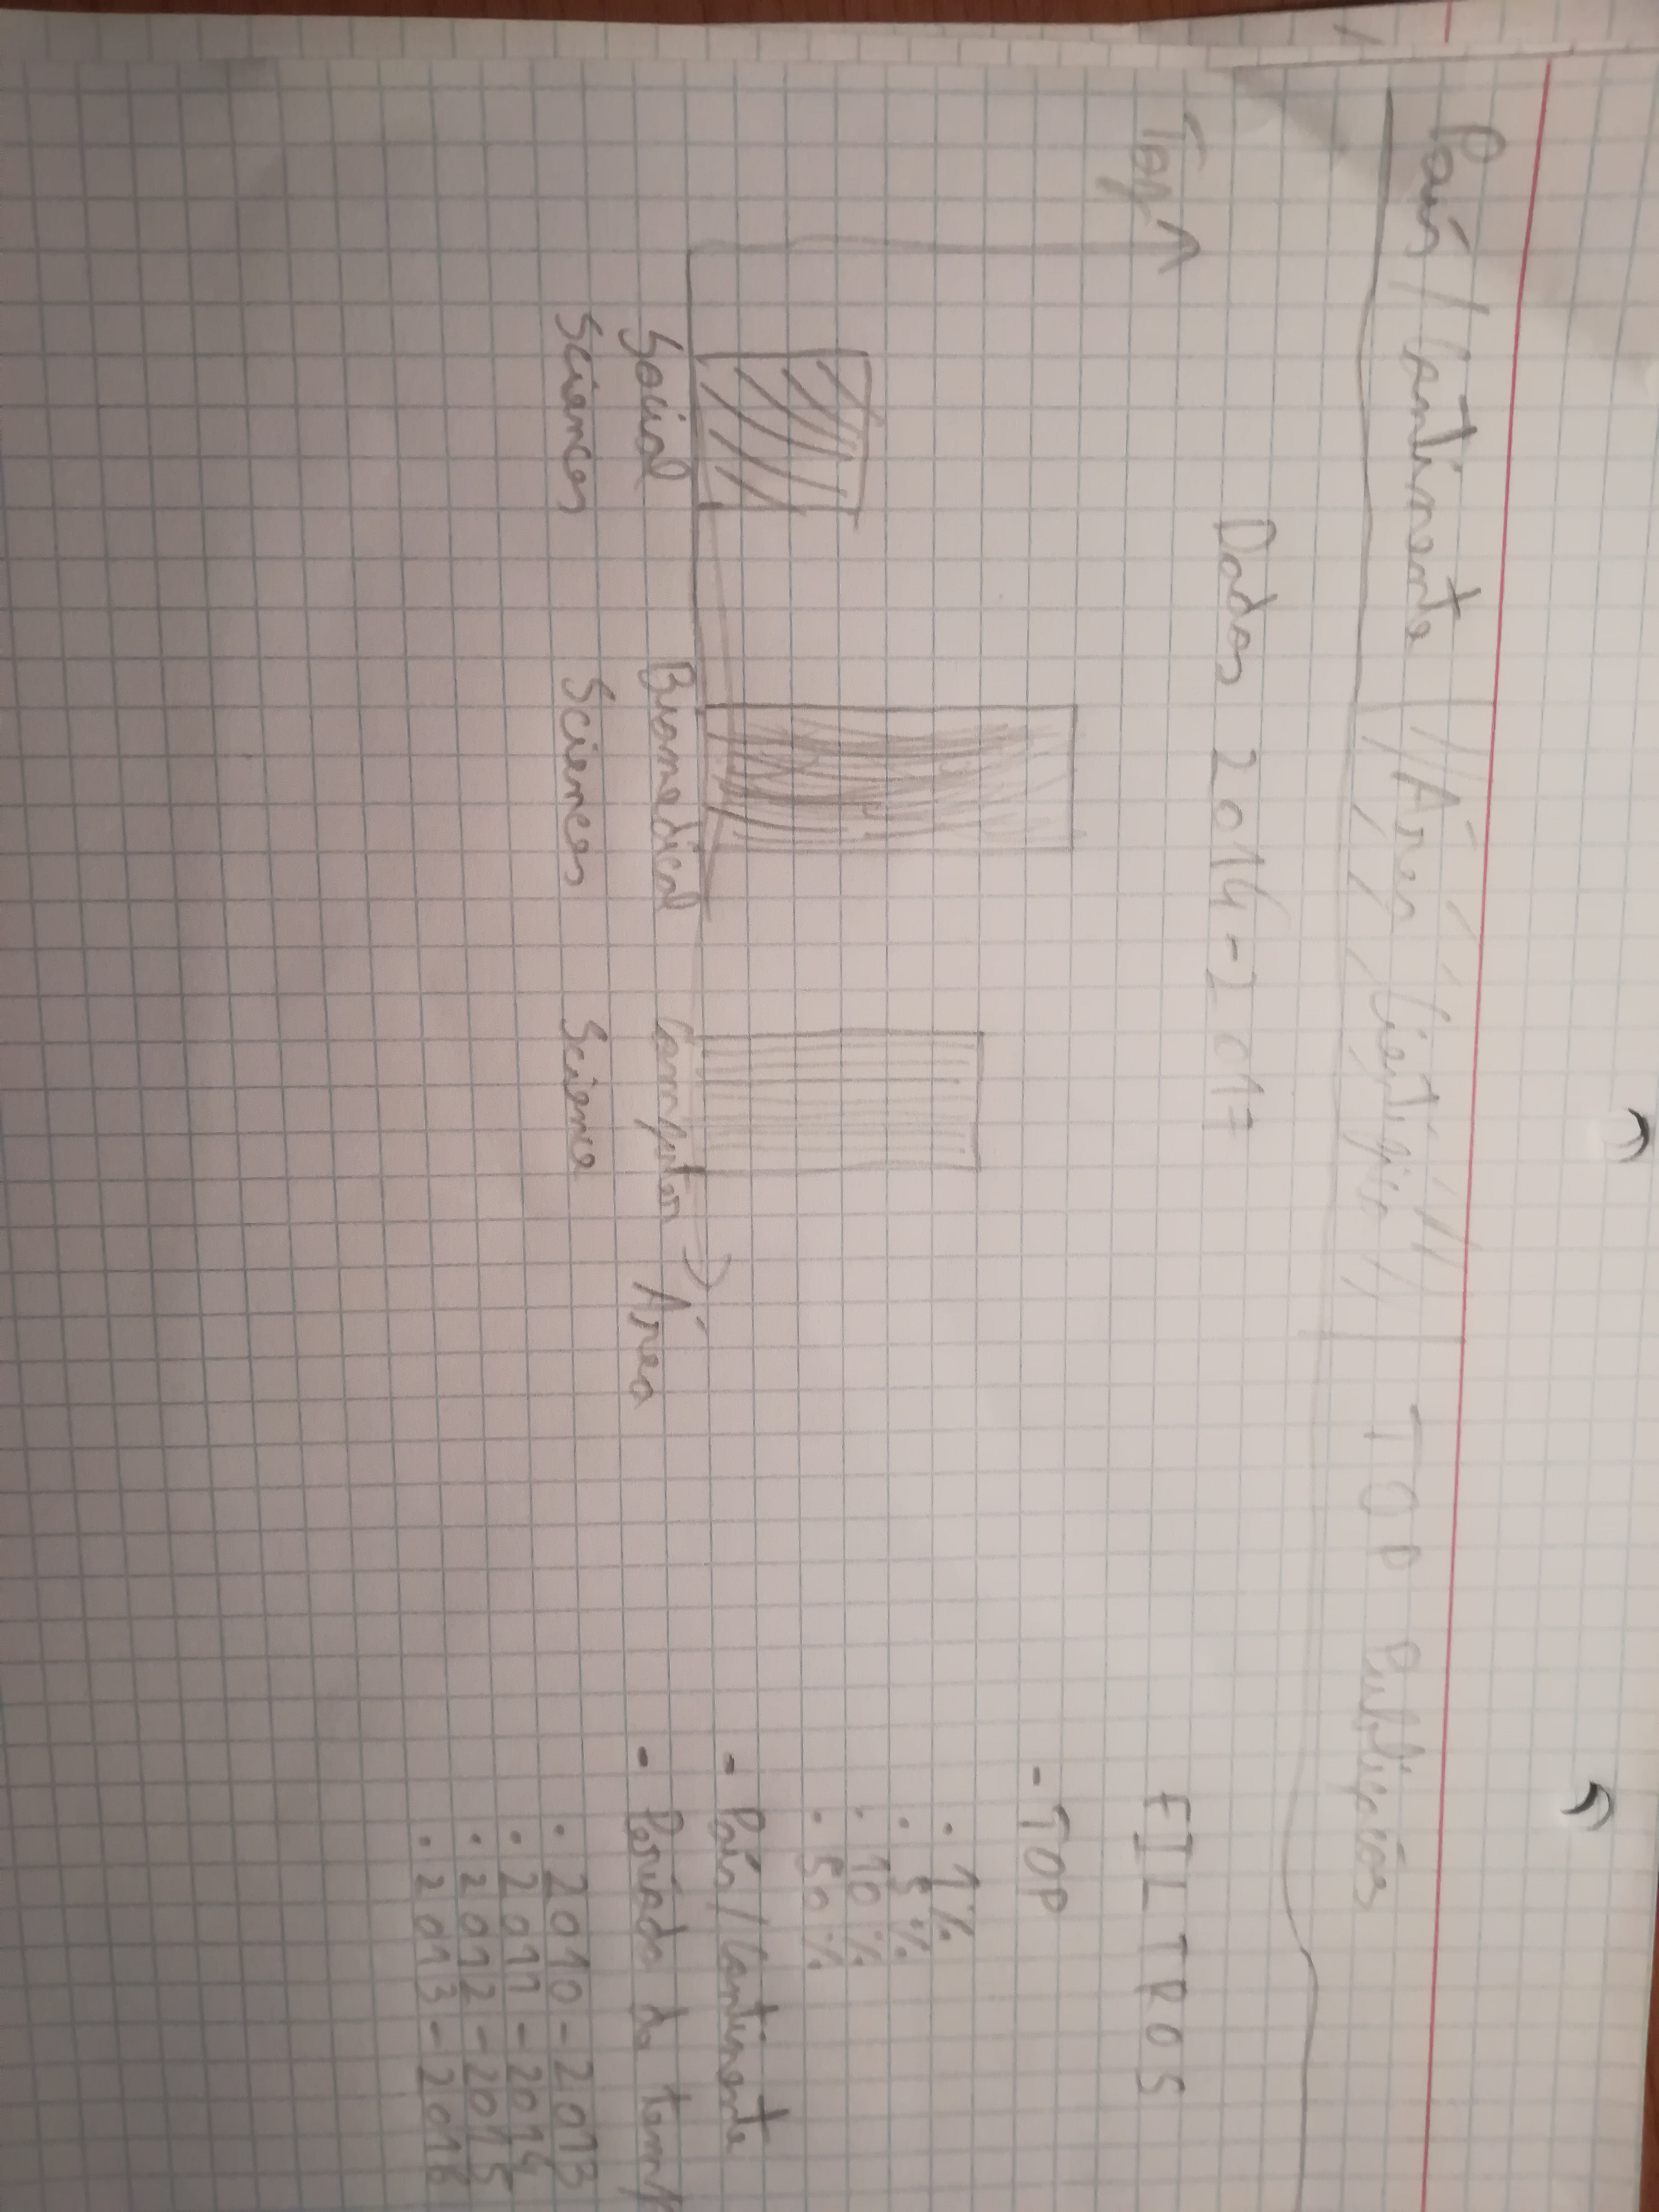 País / Continente Área Científica TOP Publicações
Dados 2014-2017
Top
Social
Sciences
Biomedical
Sciences
Computer
Science
Área
FILTROS
- TOP
· 1%
· 5%
· 10%
· 50%
- País / Continente
- Período de temp
· 2010-2013
· 2011-2014
· 2012-2015
· 2013-2016